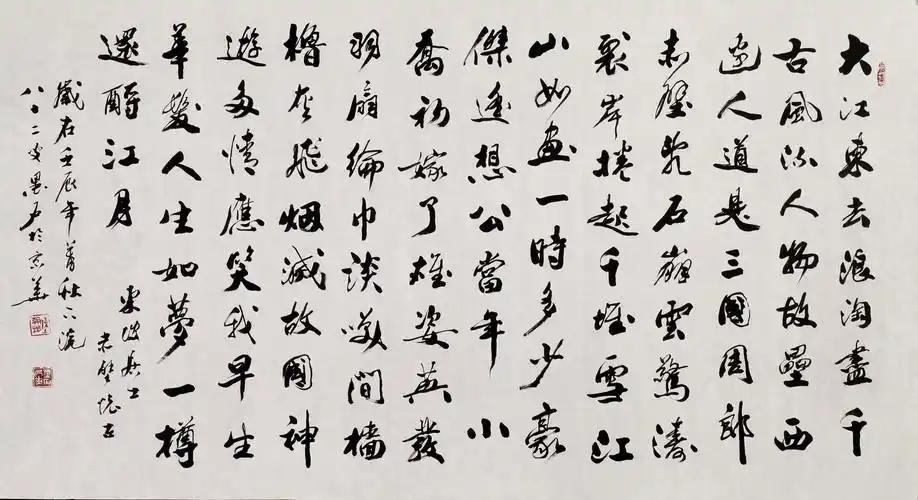 大江東去浪淘盡千
古風流人物故壘西
邊人道是三國周郎
赤壁亂石崩雲驚濤
裂岸捲起千堆雪江
山如畫一時多少豪
傑遙想公當年小
喬初嫁了雄姿英發
羽扇綸巾談笑間檣
櫓灰飛烟滅故國神
遊多情應笑我早生
華髮人生如夢一樽
還酹江月
東坡居士
赤壁懷古
歲在壬辰年菁秋下浣
八十二叟於京華